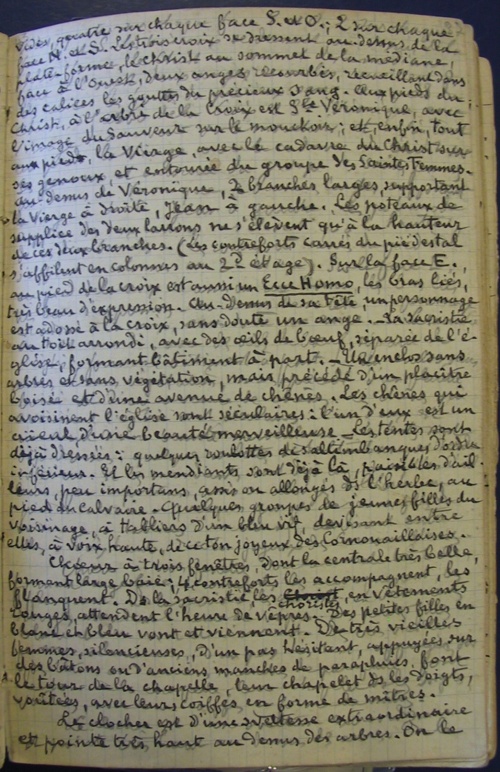 vides, quatre sur chaque face S. et O.; 2 sur chaque
face N. et S. Les trois croix se dressent au-dessus de la
plate-forme, le Christ au sommet de la médiane,
face à l'ouest, deux anges recourbés, recueillant dans
des calices les gouttes du précieux sang. Aux pieds du
Christ, à l'arbre de la Croix est Ste Véronique, avec
l'image du Sauveur sur le mouchoir; et, enfin, tout
aux pieds, la Vierge, avec le cadavre du Christ sur
ses genoux, et entourée du groupe des Saintes Femmes.
au-dessus de Véronique, 2 branches larges, supportant
la Vierge à droite, Jean à gauche. Les poteaux de
supplice des deux larrons ne s'élèvent qu'à la hauteur
de ces deux branches. (Les contreforts carrés du piédestal
s'affilent en colonnes au 2d étage). Sur la face E.,
au pied de la croix est aussi un Ecce Homo, les bras liés,
très beau d'expression. Au-dessus de sa tête, un personnage
est adossé à la croix, sans doute un ange. – La sacristie
au toit arrondi, avec des œils de bœuf, séparée de l'é-
glise, formant bâtiment à part. – Un enclos sans
arbres et sans végétation, mais précédé d'un placître
boisé et d'une avenue de chênes. Les chênes qui
avoisinent l'église sont séculaires: l'un d'eux est un
aïeul d'une beauté merveilleuse – Les tentes sont
déjà dressées: quelques roulottes de saltimbanques d'ordre
inférieur. Et les mendiants sont déjà là, paisibles d'ail-
leurs, peu importans, assis ou allongés ds l'herbe, au
pied du calvaire. Quelques groupes de jeunes filles du
voisinage, à tabliers d'un bleu vif, devisant entre
elles, à voix haute, de ce ton joyeux des Cornouaillaises.
Chœur à trois fenêtres, dont la centrale très belle,
formant large baie; 4 contreforts les accompagnent, les
flanquent. De la sacristie les choristes, en vêtements
rouges, attendent l'heure de vêpres. Des petites filles en
blanc et bleu vont et viennent. De très vieilles
femmes, silencieuses, d'un pas hésitant, appuyées sur
des bâtons ou d'anciens manches de parapluies, font
le tour de la chapelle, leur chapelet ds les doigts,
voûtées, avec leurs coiffes en forme de mîtres.
Le clocher est d'une sveltesse extraordinaire
et pointe très haut au-dessus des arbres. On le